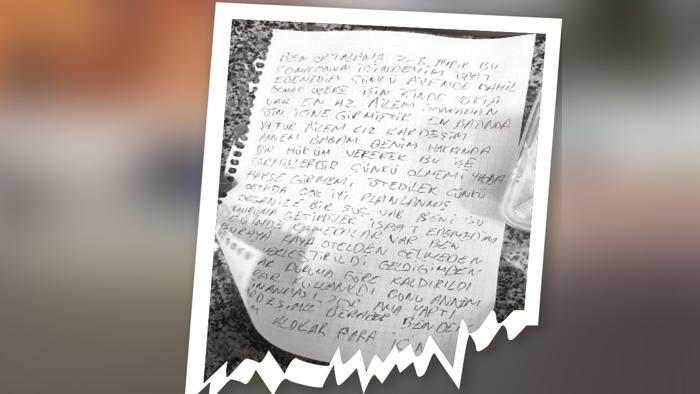 BEN ORTALAMA 2,5 AYDIR BU
KOMPLONUN İÇİNDEYİM İSPAT
EDEMEDİM ÇÜNKÜ AİLEMDE DAHİL
OLMAK ÜZERE İŞİN İÇİNDE 10 KİŞİ
VAR EN AZ AİLEM SONRADAN
İŞİN İÇİNE GİRMİŞTİR EN BAŞINDA
YOTUR AİLEM KIZ KARDEŞİM
ANNEM BABAM BENİM HAKKINDA
BİR HÜKÜM VEREREK BU İŞE
GİRMİŞLERDİR ÇÜNKÜ ÖLMEMİ YADA
HAPSE GİRMEMİ İSTEDİLER ÇÜNKÜ
ORTADA ÇOK İYİ PLANLANMIŞ
ORGANİZE BİR SUÇ VAR BENİ BU
DURUMA GETİRDİLER İSPAT EDEMEDİM
EVİNDE KAMERALAR VAR BEN
BURAYA KAYA OTELDEN GELMEDEN
GELDİĞİMDEN
DURUMA GÖRE KALDIRILDI
KULLANILDI BUNU ANNEM
İNANMASI ZOR AMA YAPTI
BERABER BENDEN
ALACAKLAR PARA İÇİN